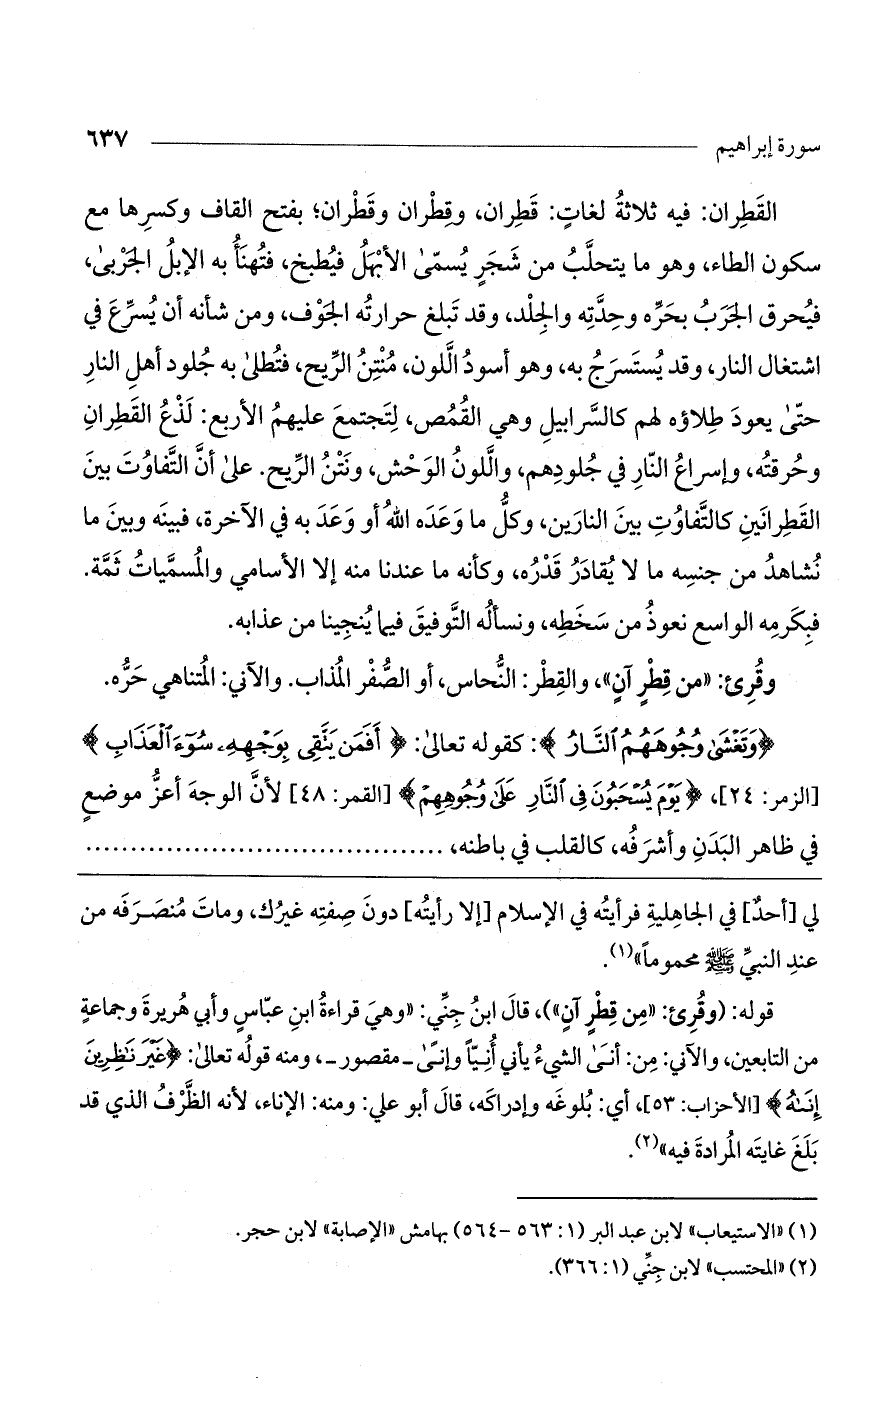 سورة إبراهيم ٦٣٧
القَطِران: فيه ثلاثةُ لغاتٍ: قَطِران، وقِطْران وقَطْران؛ بفتح القاف وكسرِها مع
سكون الطاء، وهو ما يتحلَّبُ من شَجَرٍ يُسمّىٰ الأبْهَلُ فيُطبخ، فتُهنَأُ به الإبلُ الجَرْبىٰ،
فيُحرق الجَرَبُ بحَرِّه وحِدَّتِه والجِلْد، وقد تَبلغ حرارتُه الجَوْف، ومن شأنه أن يُسرِّعَ في
اشتغال النار، وقد يُستَسرَجُ به، وهو أسودُ الَّلون، مُنْتِنُ الرِّيح، فتُطلىٰ به جُلود أهلِ النارِ
حتّىٰ يعودَ طِلاؤه لهم كالسَّرابيلِ وهي القُمُص، لِتَجتمعَ عليهمُ الأربع: لَذْعُ القَطِرانِ
وحُرقتُه، وإسراعُ النّارِ في جُلودِهم، والَّلونُ الوَحْش، ونَتْنُ الرِّيح. علىٰ أنَّ التَّفاوُتَ بينَ
القَطِرانَينِ كالتَّفاوُتِ بينَ النارَين، وكلُّ ما وَعَدَه اللهُ أو وَعَدَ به في الآخرة، فبينَه وبينَ ما
نُشاهدُ من جنسِه ما لا يُقادَرُ قَدْرُه، وكأنه ما عندنا منه إلا الأسامي والمُسمَّياتُ ثَمَّة.
فبِكَرمِه الواسع نعوذُ من سَخَطِه، ونسألُه التَّوفيقَ فيما يُنجِينا من عذابه.
وقُرِئ: «من قِطْرٍ آنٍ»، والقِطْر: النُّحاس، أو الصُّفْر المُذاب. والآني: المُتناهي حَرُّه.
﴿وَتَغْشَىٰ وُجُوهَهُمُ ٱلنَّارُ﴾: كقوله تعالىٰ: ﴿أَفَمَن يَتَّقِى بِوَجْهِهِۦ سُوٓءَ ٱلْعَذَابِ﴾
[الزمر: ٢٤]، ﴿يَوْمَ يُسْحَبُونَ فِى ٱلنَّارِ عَلَىٰ وُجُوهِهِمْ﴾ [القمر: ٤٨] لأنَّ الوجهَ أعزُّ موضعٍ
في ظاهر البَدَنِ وأشرَفُه، كالقلب في باطنه، .......................................
لي [أحدٌ] في الجاهليةِ فرأيتُه في الإسلام [إلا رأيتُه] دونَ صِفتِه غيرُك، وماتَ مُنصَرَفَه من
عندِ النبيِّ ﷺ محموماً»(١).
قوله: (وقُرِئ: «مِن قِطْرٍ آنٍ»)، قالَ ابنُ جِنِّي: «وهيَ قراءةُ ابنِ عبّاسٍ وأبي هُريرةَ وجماعةٍ
من التابعين، والآني: مِن: أنىٰ الشيءُ يأني أُنِيّاً وإنىً ـ مقصور ـ، ومنه قولُه تعالىٰ: ﴿غَيْرَ نَٰظِرِينَ
إِنَىٰهُ﴾ [الأحزاب: ٥٣]، أي: بُلوغَه وإدراكَه، قالَ أبو علي: ومنه: الإناء، لأنه الظَّرْفُ الذي قد
بَلَغَ غايتَه المُرادةَ فيه»(٢).
(١) «الاستيعاب» لابن عبد البر (١: ٥٦٣ -٥٦٤) بهامش «الإصابة» لابن حجر.
(٢) «المحتسب» لابن جِنِّي (١: ٣٦٦).